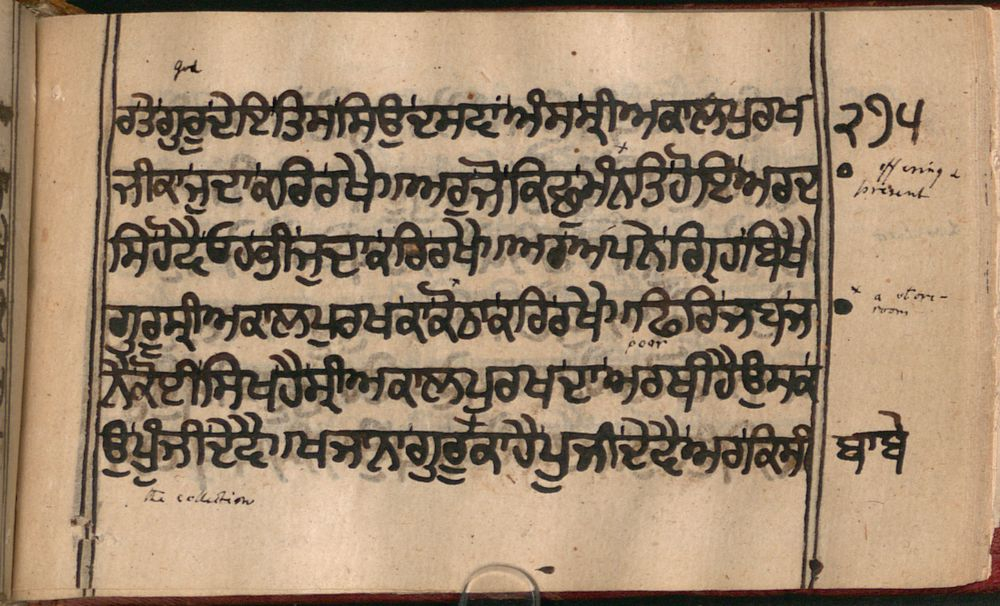 god
ਰਤੇਗੁਰੂਦੇਇਤਿਸਸਿਉਦਸਵਾਂਅੰਸਸ੍ਰੀਅਕਾਲਪੁਰਖ ੨੧੫
ਜੀਕਾਜੁਦਾਕਰਿਰਖੈ।ਅਰੁਜੋਕਿਛੁਮੰਨਤਿਹੋਇਅਰਦ
offering a
present
ਸਿਹੋਵੈਓਹਭੀਜੁਦਾਕਰਿਰਖੈ।ਅਰਅਪਨੇਗ੍ਰਿਹਬਿਖੈ
ਗੁਰੂਸ੍ਰੀਅਕਾਲਪੁਰਖਕਾਕੋਠਾਕਰਿਰਖੈ।ਫਿਰਿਜਬਜ
a store-
room
poor
ਨੈਕੋਈਸਿਖਹੈਸ੍ਰੀਅਕਾਲਪੁਰਖਦਾਅਰਥੀਹੈਉਸਕ
ਉਪੂੰਜੀਦੇਵੈ।ਖਜਾਨਾਗੁਰੂਕਾਹੈਪੂਜੀਦੇਵੈਅਰਕਿਸੀ ਬਾਬੇ
the collection